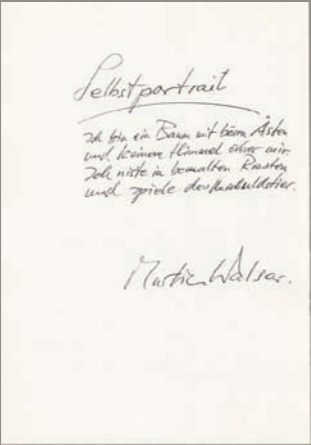 Selbstportrait
Ich bin ein Baum mit Ästen
und keinen Himmel über mir.
Ich niste in bemalten Kasten
und spiele das
Martin Walser.